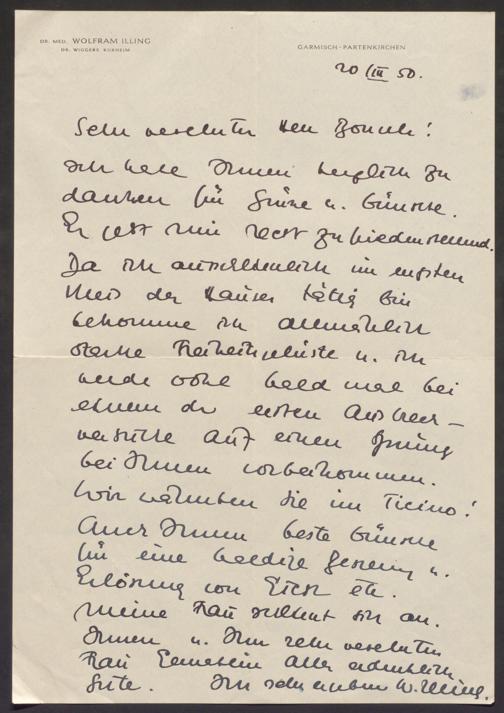 DR. MED. WOLFRAM ILLING
DR. WIGGERS KURHEIM
GARMISCH-PARTENKIRCHEN
20/III 50.
Sehr verehrter Herr !
Ich habe Ihnen herzlich zu
danken für Grüße u. Wünsche.
Es geht mir recht zufriedenstellend.
Da ich ausschliesslich im engsten
Kreis der Häuser tätig bin
bekomme ich allmählich
starke Freiheitsgelüste u. ich
werde wohl bald mal bei
einem der ersten Ausbrech-
versuche auf einen Sprung
bei Ihnen vorbeikommen.
Wir wähnten Sie im Ticino!
Auch Ihnen beste Wünsche
für eine baldige Genesung u.
Erlösung von etc.
Meine Frau schliesst sich an.
Ihnen u. Ihrer sehr verehrten
Frau Gemahlin alles erdenklich
Gute. Ihr sehr W. Illing.